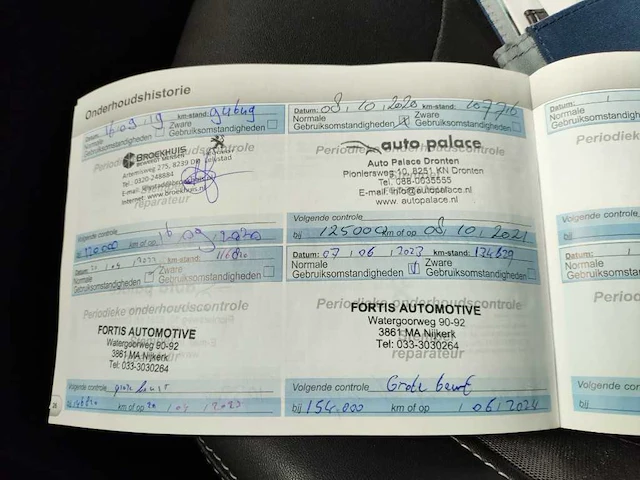 Onderhoudshistorie
Datum: 16/09/19 km-stand:
Normale Zware
Gebruiksomstandigheden Gebruiksomstandigheden
BROEKHUIS
BEWEEGT MENSEN
Artemisweg 275, 8239 DD Lelystad
Tel.: 0320-248884
Internet: www.broekhuis.nl
reparateur
Volgende controle
bij 120.000 km of op 16/09/2020
Datum: 08, 10, 2020 km-stand: 107716
Normale Zware
Gebruiksomstandigheden Gebruiksomstandigheden
auto palace
Auto Palace Dronten
Pioniersweg 10, 8251 KN Dronten
Tel. 088-0035555
E-mail: info@autopalace.nl
www.autopalace.nl
Volgende controle
bij 125000 km of op 08, 10, 2021
Datum:
km-stand:
Normale Zware
Gebruiksomstandigheden Gebruiksomstandigheden
Periodieke onderhoudscontrole
FORTIS AUTOMOTIVE
Watergoorweg 90-92
3861 MA Nijkerk
Tel: 033-3030264
Volgende controle grote beurt
km of op
Datum: 07 / 06 / 2023 km-stand: 134629
Normale Zware
Gebruiksomstandigheden Gebruiksomstandigheden
Periodieke onderhoudscontrole
FORTIS AUTOMOTIVE
Watergoorweg 90-92
3861 MA Nijkerk
Tel: 033-3030264
reparateur
Volgende controle Grote beurt
bij 154.000 km of op / 06 / 2024
26
Datum:
Normale
Gebruiksomstandig
Periodie
Volgende controle
bij
Datum:
Normale
Gebruiksomstandi
Periodi
Volgende controle
bij